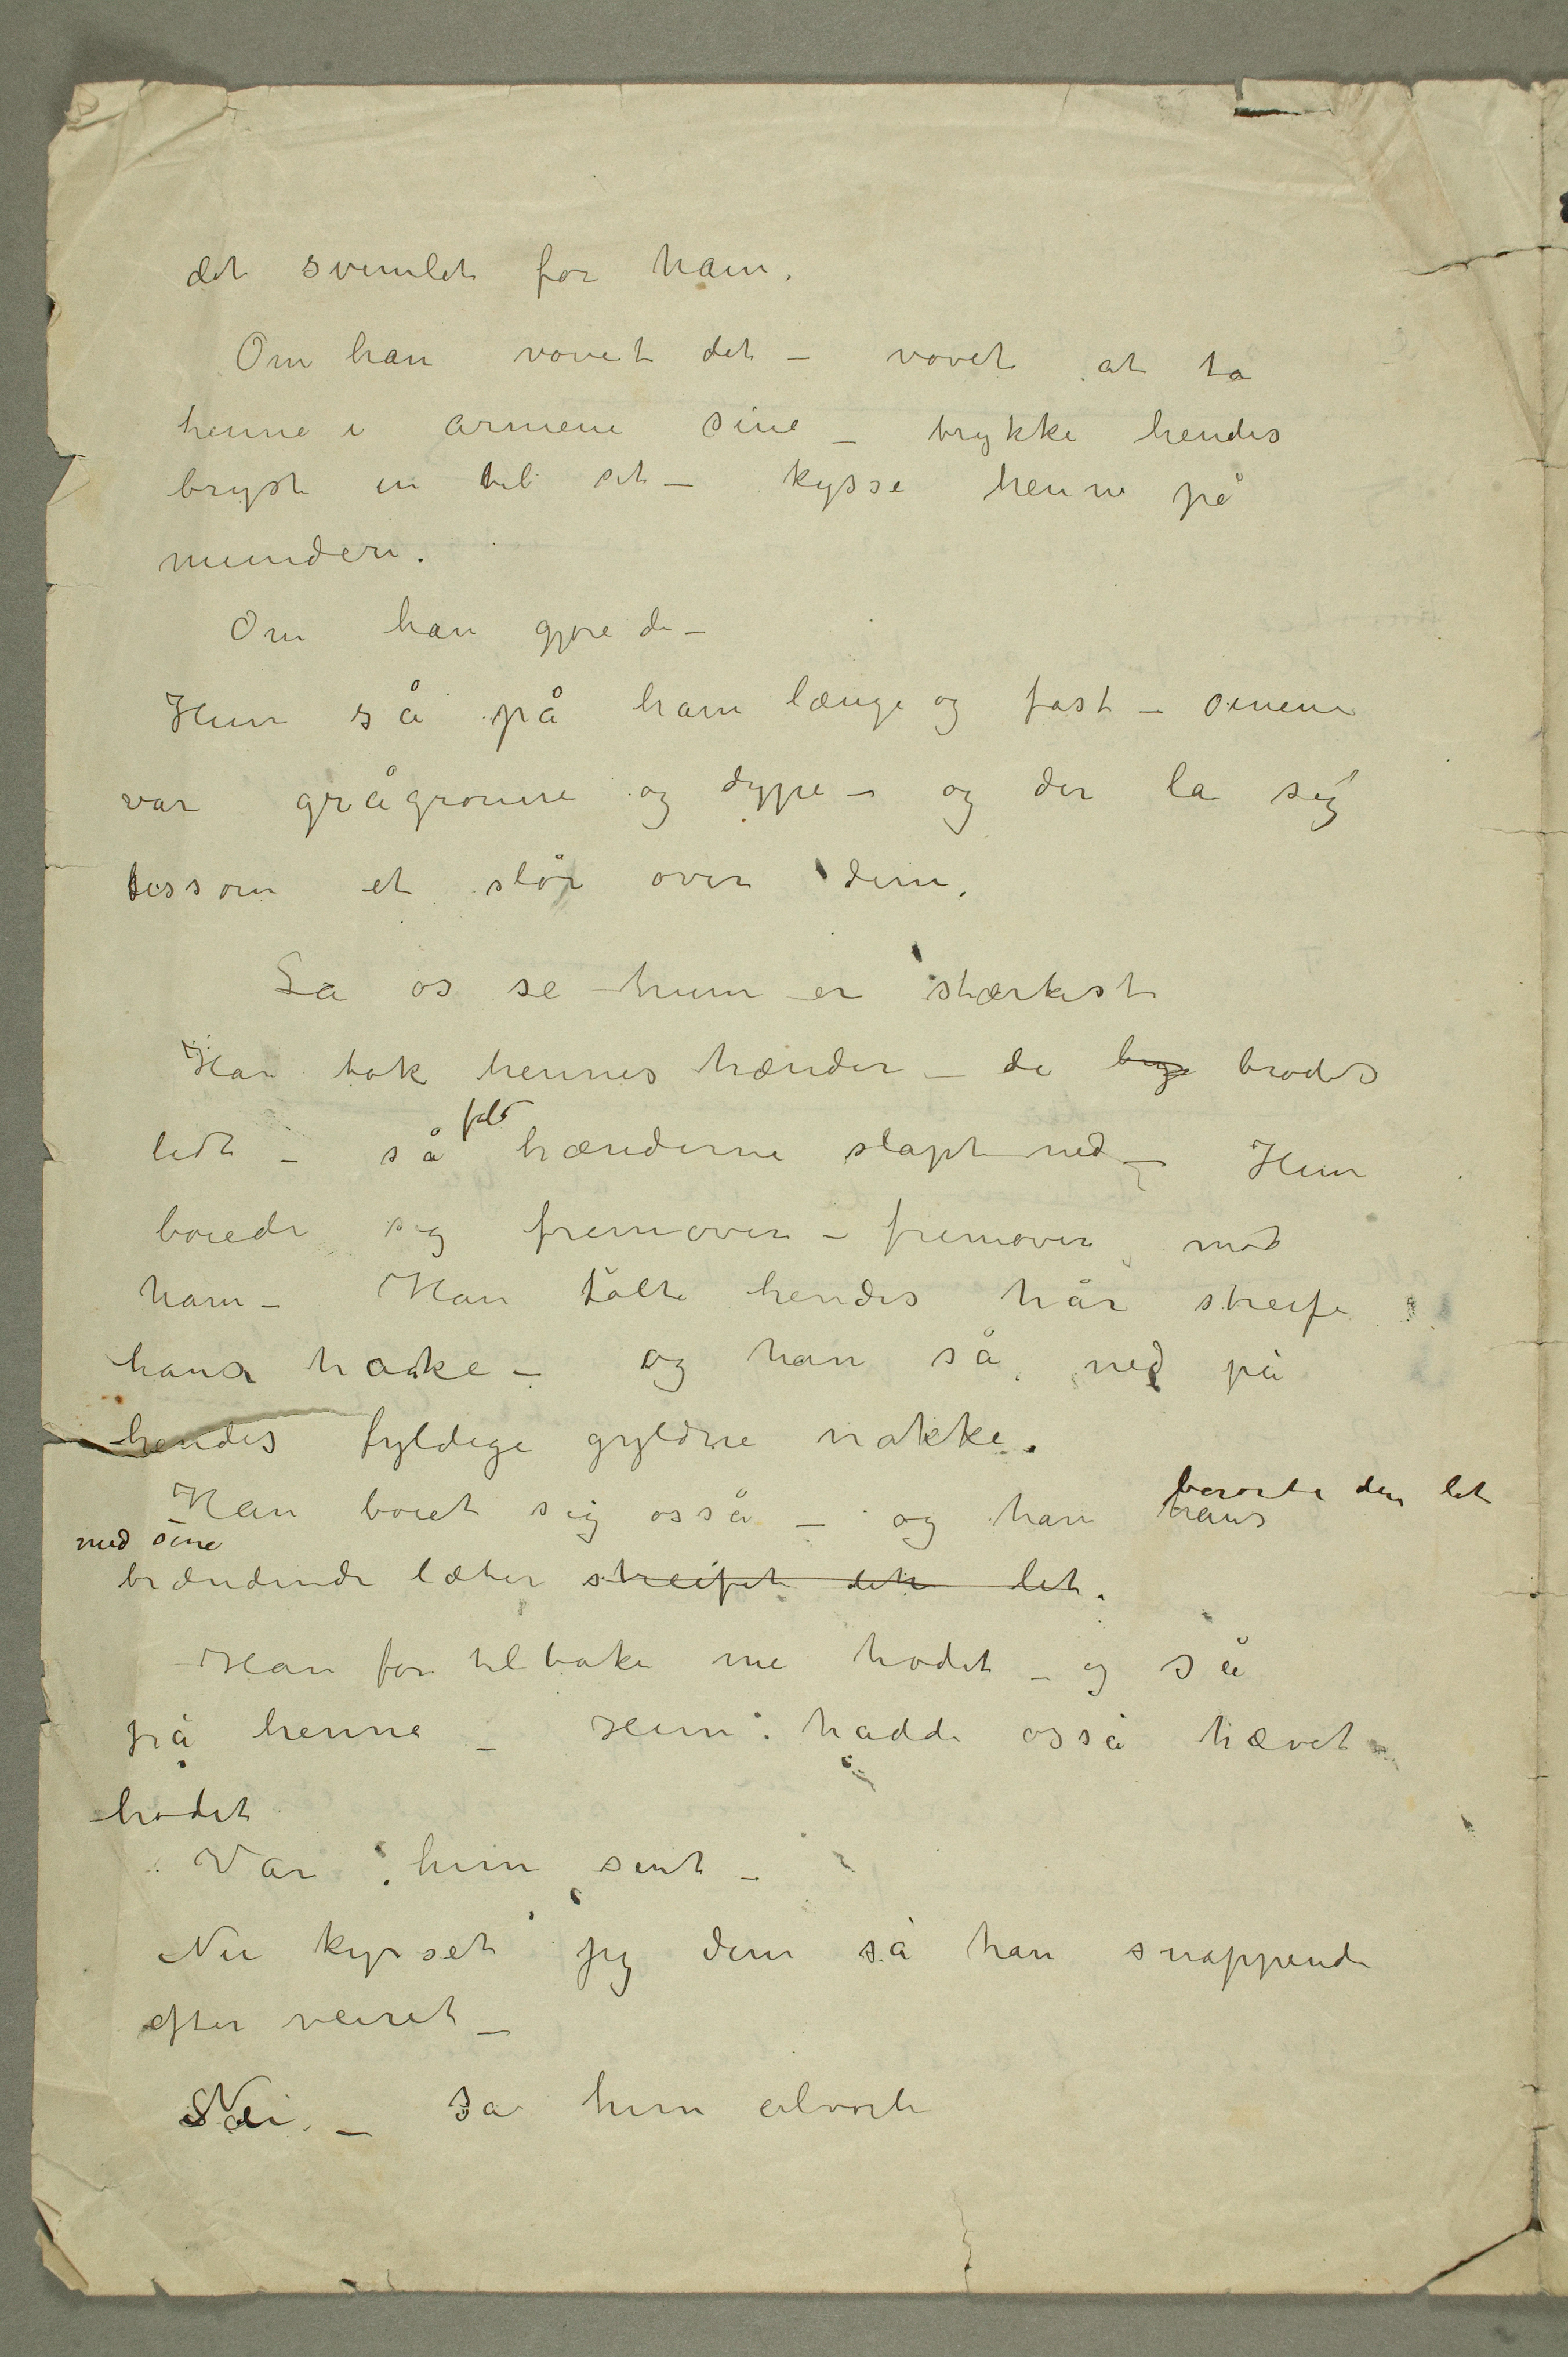 det svimlet for ham.
Om han vovet det – vovet at ta
henne i armene sine – trykke hendes
bryst in til sit – kysse henne på
munden.
Om han gjore de –
Hun så på ham længe og fast – øinene
var grågrønne og dype – og der la sig
lissom et slør over dem.
La os se hvem er stærkest
Han tok hennes hænder – de brødes
lidt – så falt hænderne slapt ned – Hun
boiede sig fremover – fremover mod
ham – Han følte hendes hår streife
hans hake – og han så ned på
hendes fyldige gyldne nakke.
Han boiet sig osså – og han berørte den let
med sine
brændende læber streifet det let.
Han for tilbake me hodet – og så
på henne – Hun hadde osså hævet
hodet
Var hun sint –
Nu kysset jeg dem sa han snappende
efter veiret –
Nei – sa hun alvorli